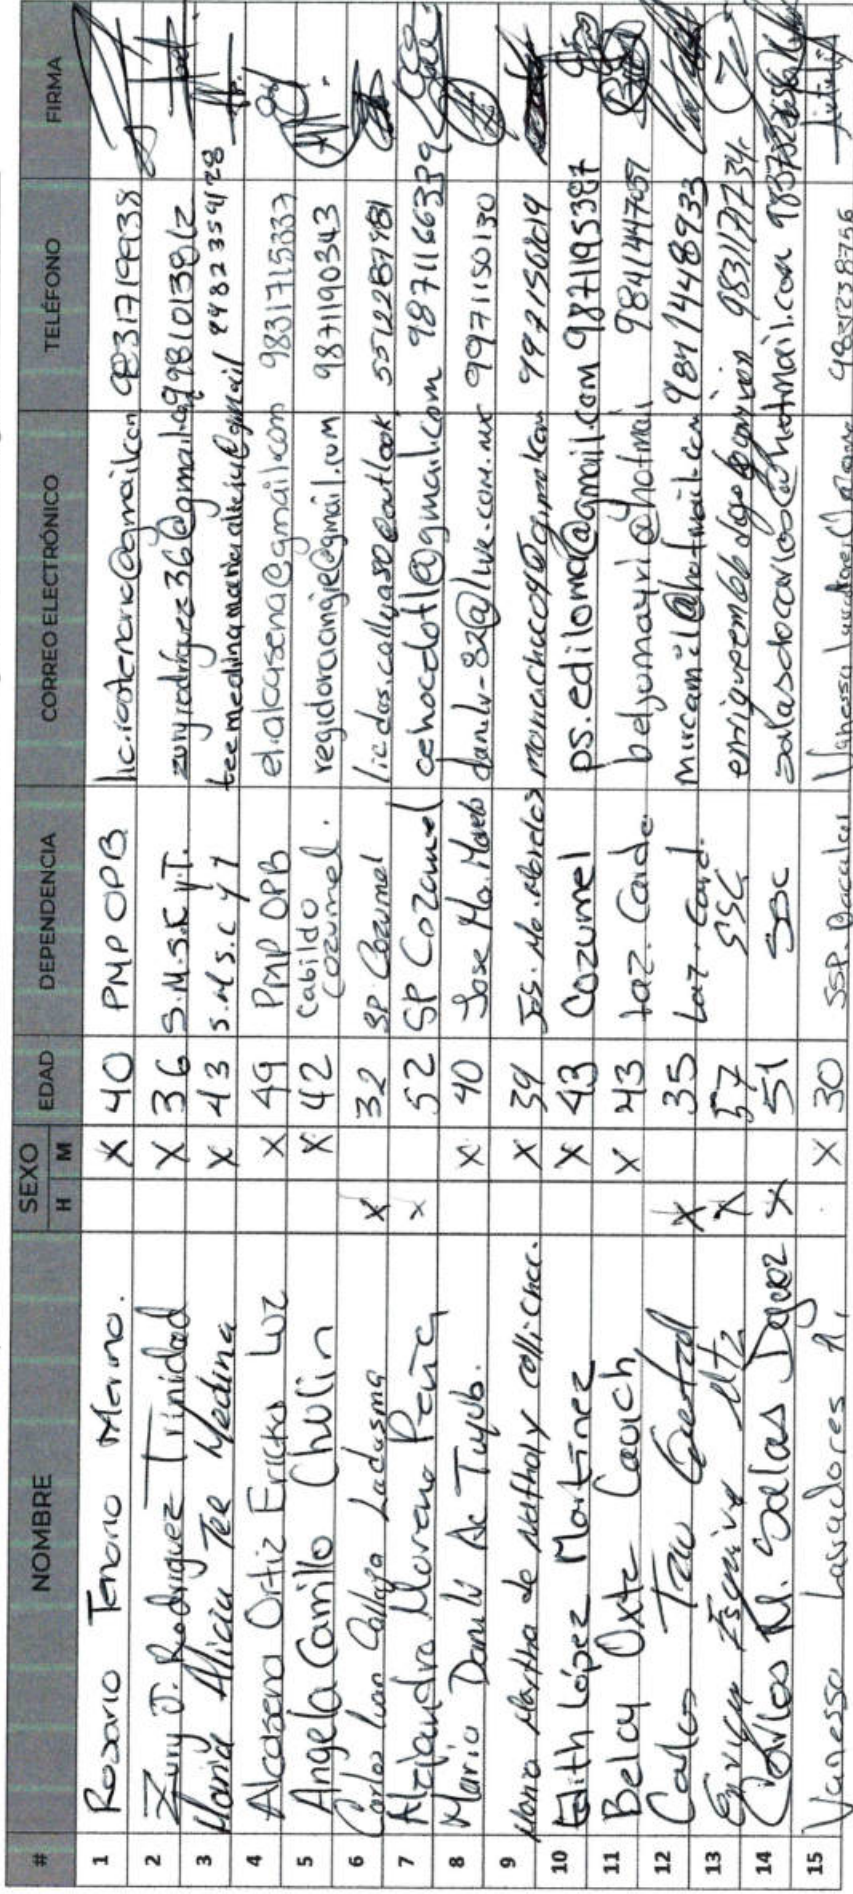 # NOMBRE SEXO H M EDAD DEPENDENCIA CORREO ELECTRÓNICO TELÉFONO FIRMA
1 Rosario Tenorio Merino. X 40 PMP OPB lic.riotenorio@gmail.com 9831719938
2 Zury J. Rodriguez Trinidad X 36 S.M.S.C.y.T. zuryrodriguez36@gmail. 9981013812
3 Maria Alicia Tee Medina X 43 S.M.S.C y T teemedinamariaalicia@gmail 9982359128
4 Alcasena Ortiz Ericka Luz X 49 PMP OPB el.alcasena@gmail.com 9831715337
5 Angela Carrillo Chulin X 42 Cabildo Cozumel. regidoraangie@gmail.com 9871190343
6 Carlos Ivan Collaza Ledesma X 32 SP. Cozumel 5512287981
7 Alejandro Moreno Peña X 52 SP Cozumel cehocdotl@gmail.com 9871166339
8 Maria Danili Ac Tuyub. X 40 Jose Ma. Morelos danily-82@live.com.mx 9971150130
9 Maria Martha de Nathaly X 39 Jos. Ma. Morelos
10 Edith López Martínez X 43 Cozumel ps.ediloma@gmail.com 9871195387
11 Belay Oxte Cauich X 43 Laz. Carde beljomayri@hotmai 9841447057
12 Carlos X 35 Laz. Card. 9841448933
13 Enrique Esquivel Mtz X 57 SSC
14 Carlos M. Salas X 51 SSC salasdocarlos@hotmail.com
15 Vanessa X 30 SSP. Bacalar 9831238766